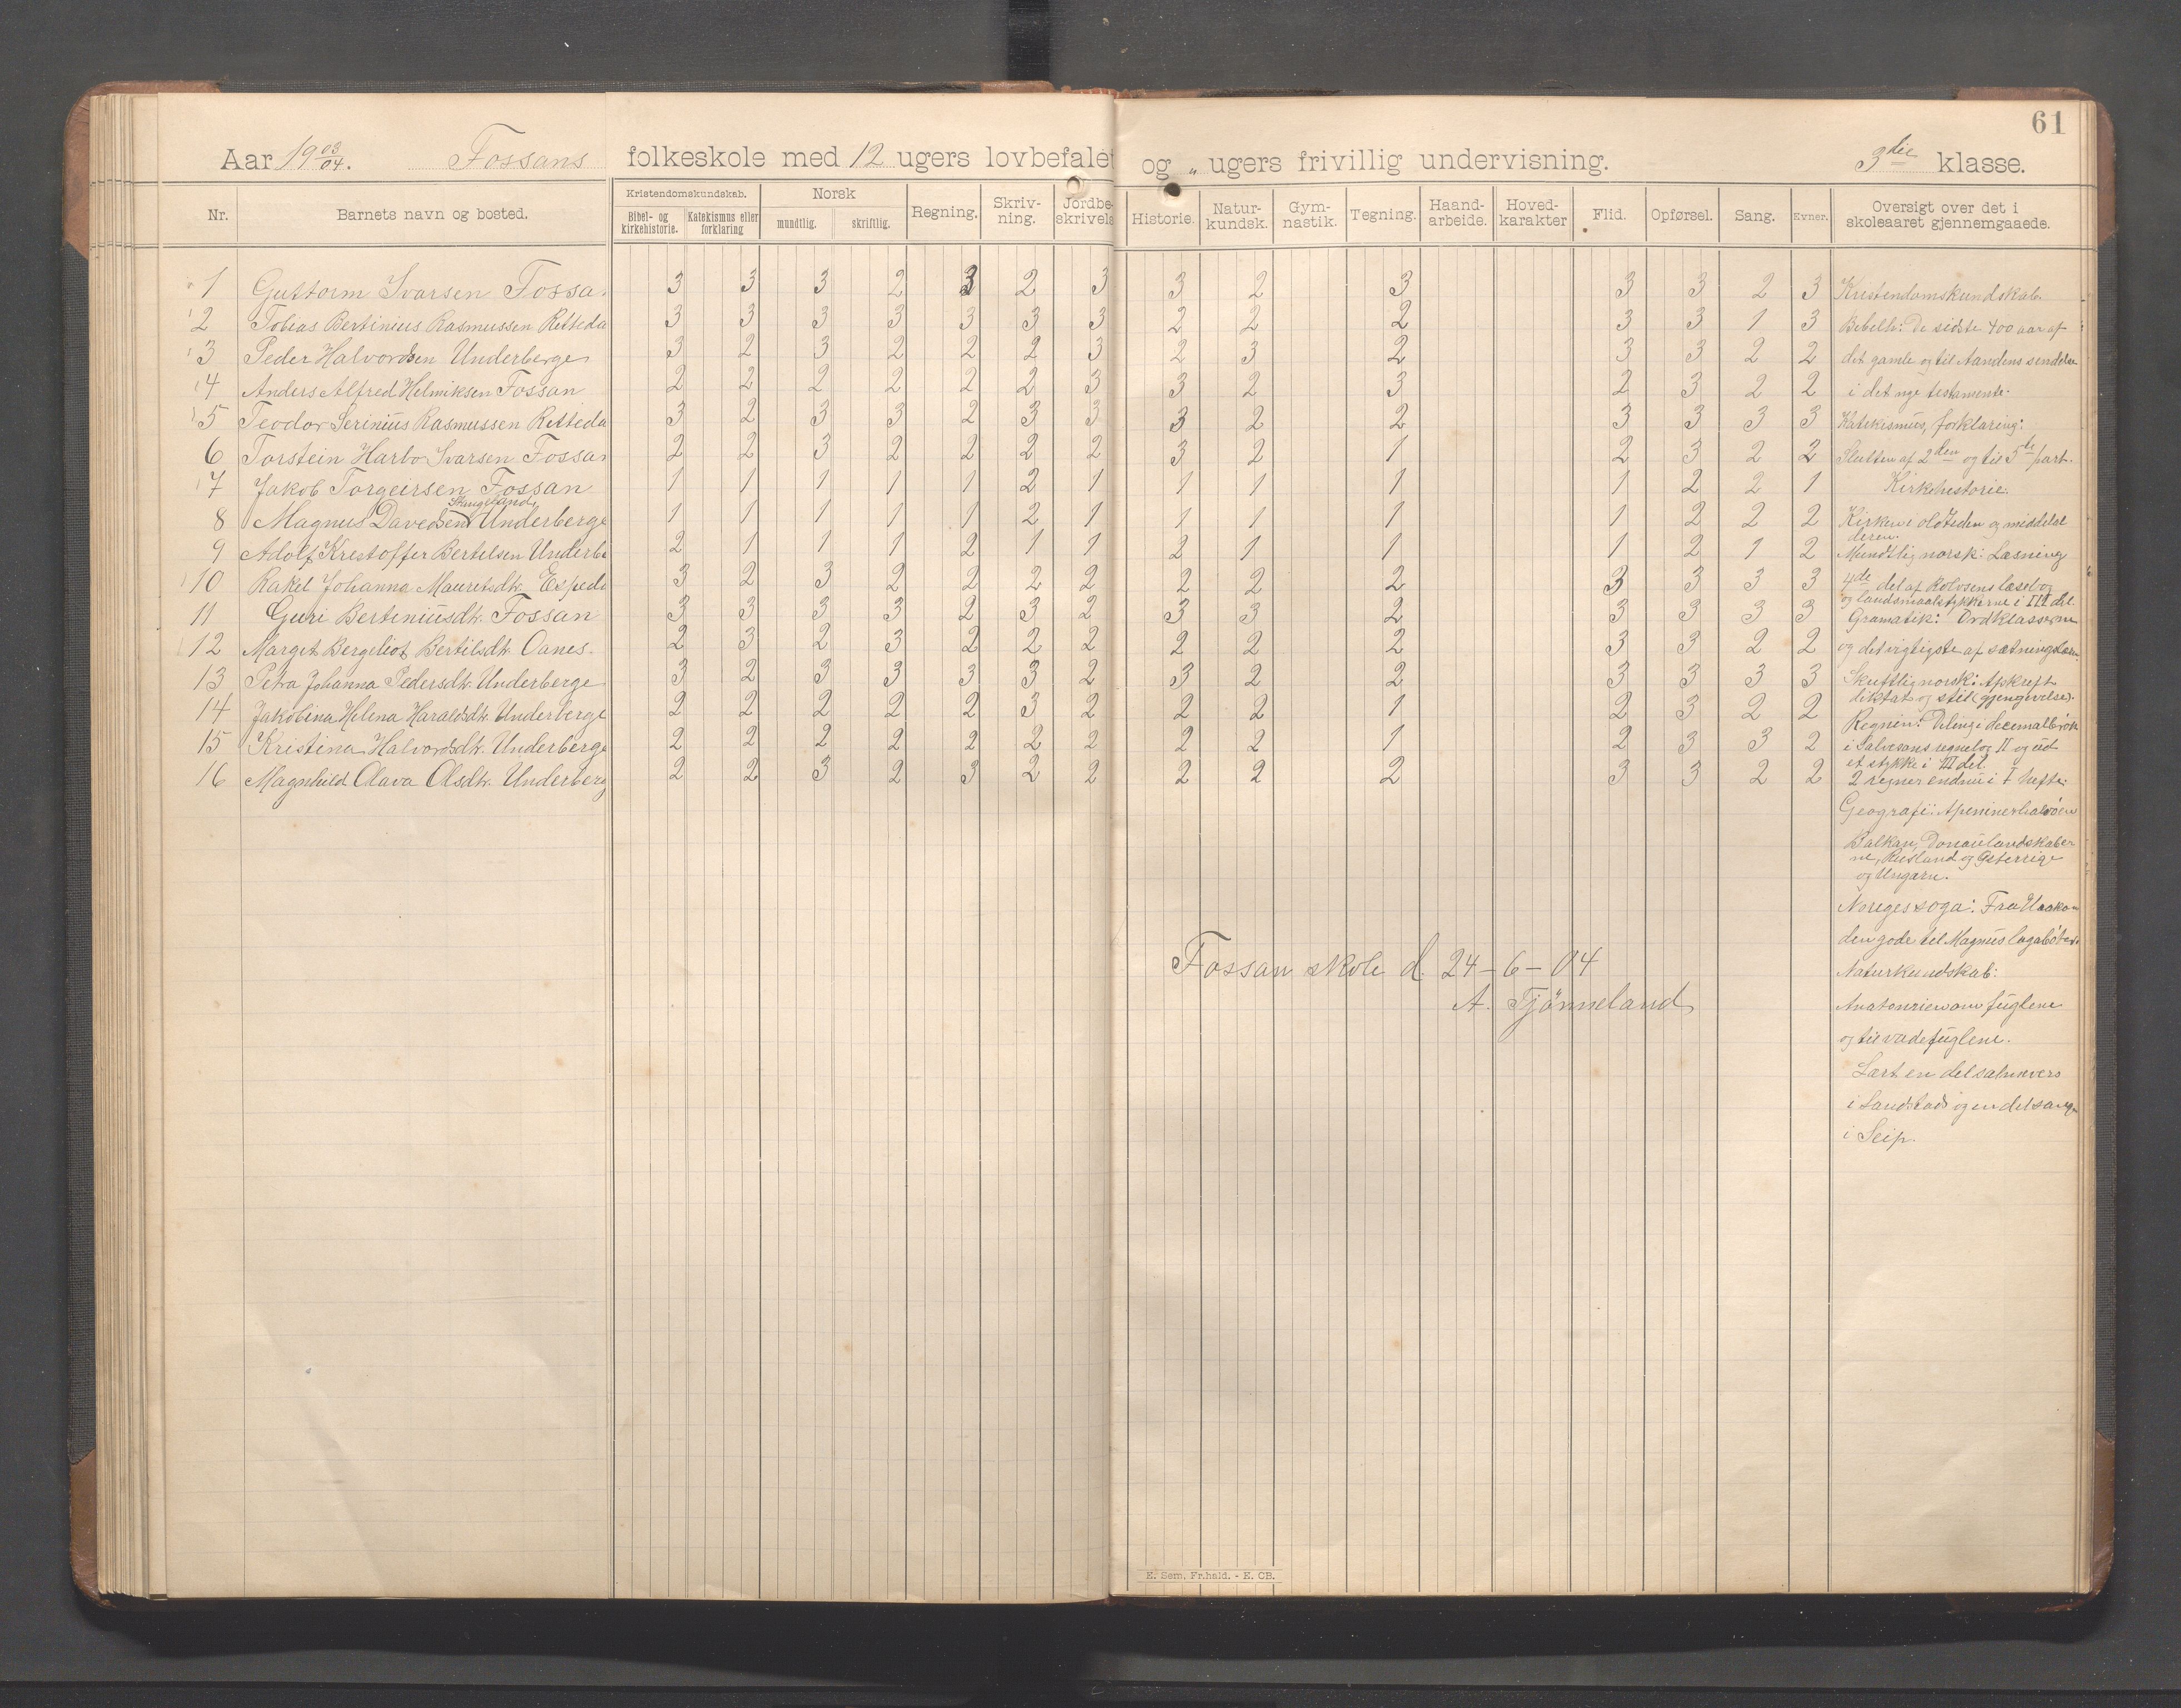 61
Aar 19 03/04. Fossans folkeskole med 12 ugers lovbefalet og „ ugers frivillig undervisning. 3die klasse.
Nr. Barnets navn og bosted. Kristendomskundskab. Bibel- og kirkehistorie. Katekismus eller forklaring Norsk mundtlig. skriftlig. Regning. Skriv-ning. Jordbe-skrivels Historie. Natur-kundsk. Gym-nastik. Tegning. Haand-arbeide. Hoved-karakter Flid. Opførsel. Sang. Evner. Oversigt over det i skoleaaret gjennemgaaede.
1 Guttorm Ivarsen Fossa 3 3 3 2 3 2 3 3 2 3 3 3 2 3 Kristendomskundskab.
2 Tobias Bertinius Rasmussen Retteda 3 3 3 3 3 3 3 2 2 2 3 3 1 3 Bibelh: De sidste 400 aar af
3 Peder Halvordsen Underberge 3 2 3 2 2 2 3 2 3 2 3 3 2 2 det gamle og til Aandens sendelse
4 Anders Alfred Helmiksen Fossan 2 2 2 2 2 2 3 3 2 3 2 3 2 2 i det nye testamente.
5 Teodor Serinius Rasmussen Retteda 3 2 3 3 2 3 3 3 2 2 3 3 3 3 Katekismus, forklaring:
6 Torstein Harbo Ivarsen Fossan 2 2 3 2 2 2 2 3 2 1 2 3 2 2 Slutten af 2den og til 5te part.
7 Jakob Torgeirsen Fossan 1 1 1 1 1 2 1 1 1 1 1 2 2 1 Kirkehistorie:
Staugeland
8 Magnus Davedsen Underberge 1 1 1 1 1 2 1 1 1 1 1 2 2 2 Kirken i oldtiden og middelal
deren.
9 Adolf Krestoffer Bertelsen Underbe 2 1 1 1 2 1 1 2 1 1 1 2 1 2 Mundtlig norsk: Læsning
10 Rakel Johanna Mauretsdtr. Espeda 3 2 3 2 2 2 2 2 2 2 3 3 3 3 4de del af Rolvsens læsebog
og landsmaalstykkerne i III del.
11 Guri Berteniusdtr. Fossan 3 3 3 3 2 3 2 3 3 2 3 3 3 3 Gramatik: Ordklasserne
12 Marget Bergeliot Bertilsdtr. Oanes. 2 3 2 3 2 2 2 2 2 2 3 3 2 2 og det vigtigste af sætningslæren.
13 Petra Johanna Pedersdtr. Underberge 3 2 3 3 3 3 2 3 2 2 3 3 3 3 Skriftlig norsk: Afskrift
diktat og stil (gjengivelse).
14 Jakobina Helena Haraldsdtr. Underberge 2 2 2 2 2 3 2 2 2 1 2 3 2 2
Regnin: Deling i decimalbrøk
15 Kristina Halvordsdtr. Underberge 2 2 2 2 2 2 2 2 2 1 2 3 3 2 i Salvesens regnebog II og ud
et stykke i III del.
16 Magnhild Olava Olsdtr. Underberg 2 2 3 2 3 2 2 2 2 2 3 3 2 2 2 regner endnu i I hefte.
Geografi: Apeninerhalvöen
Balkan, Donaulandskaber
ne, Rusland og Østerrige
og Ungarn.
Noregessoga: Fra Haakon
den gode til Magnus lagabøter.
Fossan skole d. 24-6-04
Naturkundskab:
A. Tjönneland
Anatomien om fuglene
og til vadefuglene.
Lært en del salmevers
i Landstads og en del sange
i Seip.
E. Sem, Fr.hald. - E. CB.